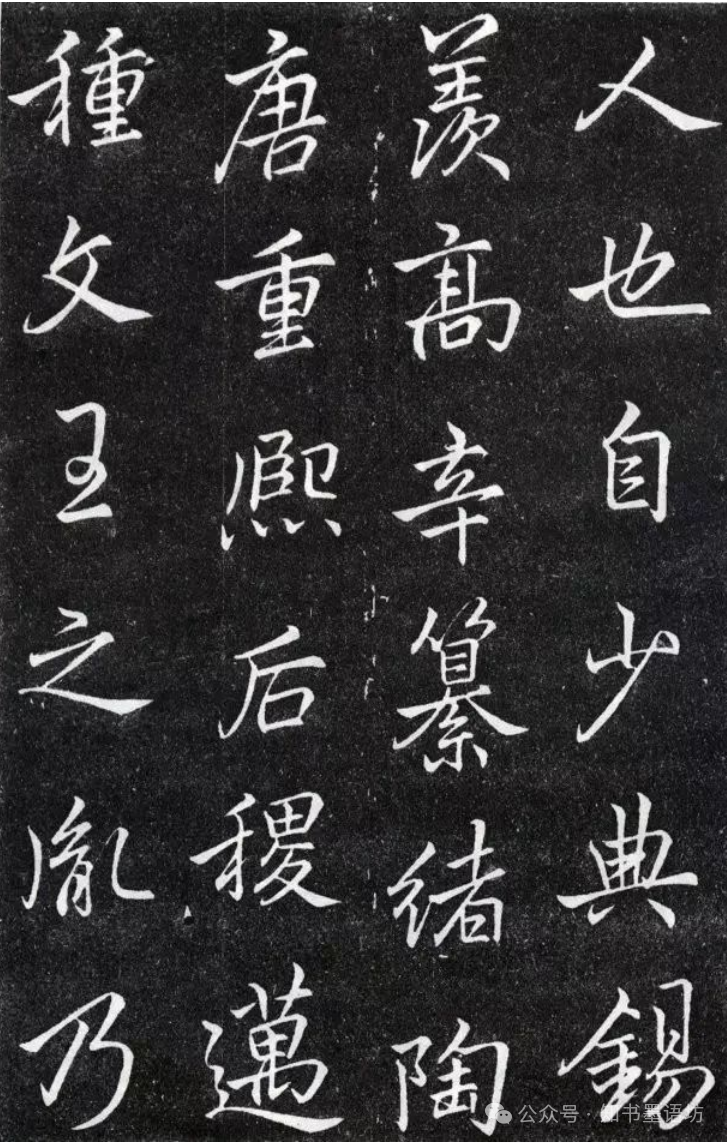 人也自少典錫
羨髙辛纂緒陶
唐重熙后稷邁
種文王之胤乃
公众号 · 书墨语坊